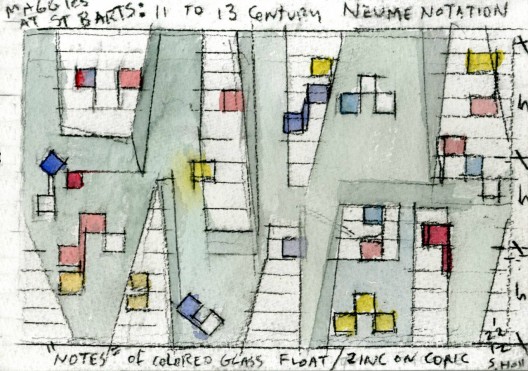 MAGGIES
AT ST BARTS: 11 TO 13 CENTURY NEUME NOTATION
"NOTES" OF COLORED GLASS FLOAT / ZINC ON CORIC
S. Holl